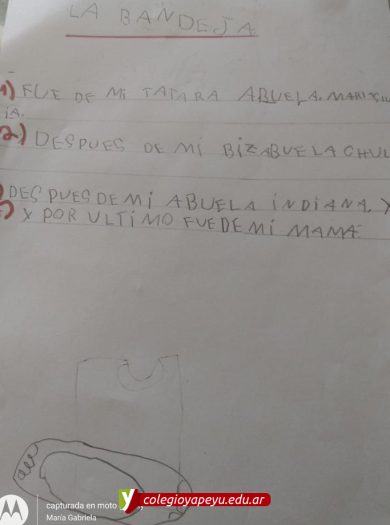 LA BANDEJA
1) FUE DE MI TATARA ABUELA. MARI
IA.
2) DESPUES DE MI BIZABUELA CHUL
DESPUES DE MI ABUELA INDIANA, Y
X POR ULTIMO FUE DE MI MAMÁ
capturada en moto
María Gabriela
colegioyapeyu.edu.ar